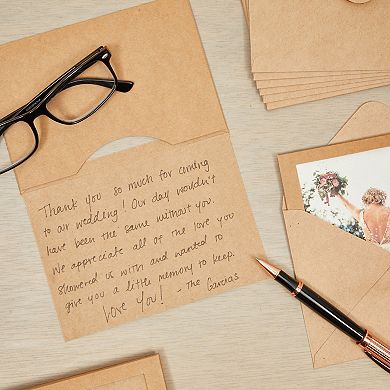 Thank you so much for coming
to our wedding! Our day wouldn't
have been the same without you.
We appreciate all of the love you
showered us with and wanted to
give you a little memory to keep.
Love you! - The Garcias